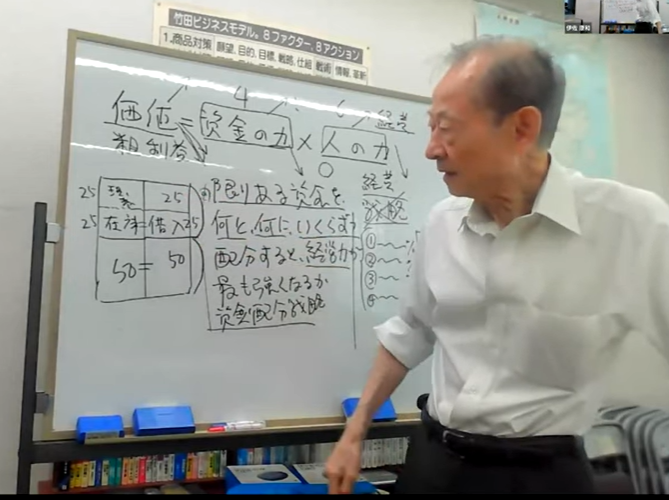 竹田ビジネスモデル。8ファクター、8アクション
1.商品対策 願望、目的、目標、戦略、仕組 戦術 情報、革新
4
価値=資金の力×人の力
粗利益
経営
25 25
25 在 借入 25
50=50
限りある資金を
何と、何に、いくらずつ
配分すると、経営力が
最も強くなるか
資金配分戦略
経営
戦略
①
②
③
④